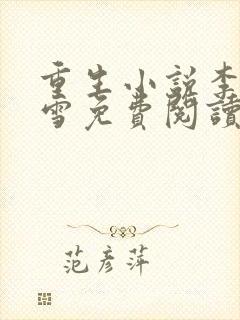 重生小說李
雪免費閱讀
范彥萍